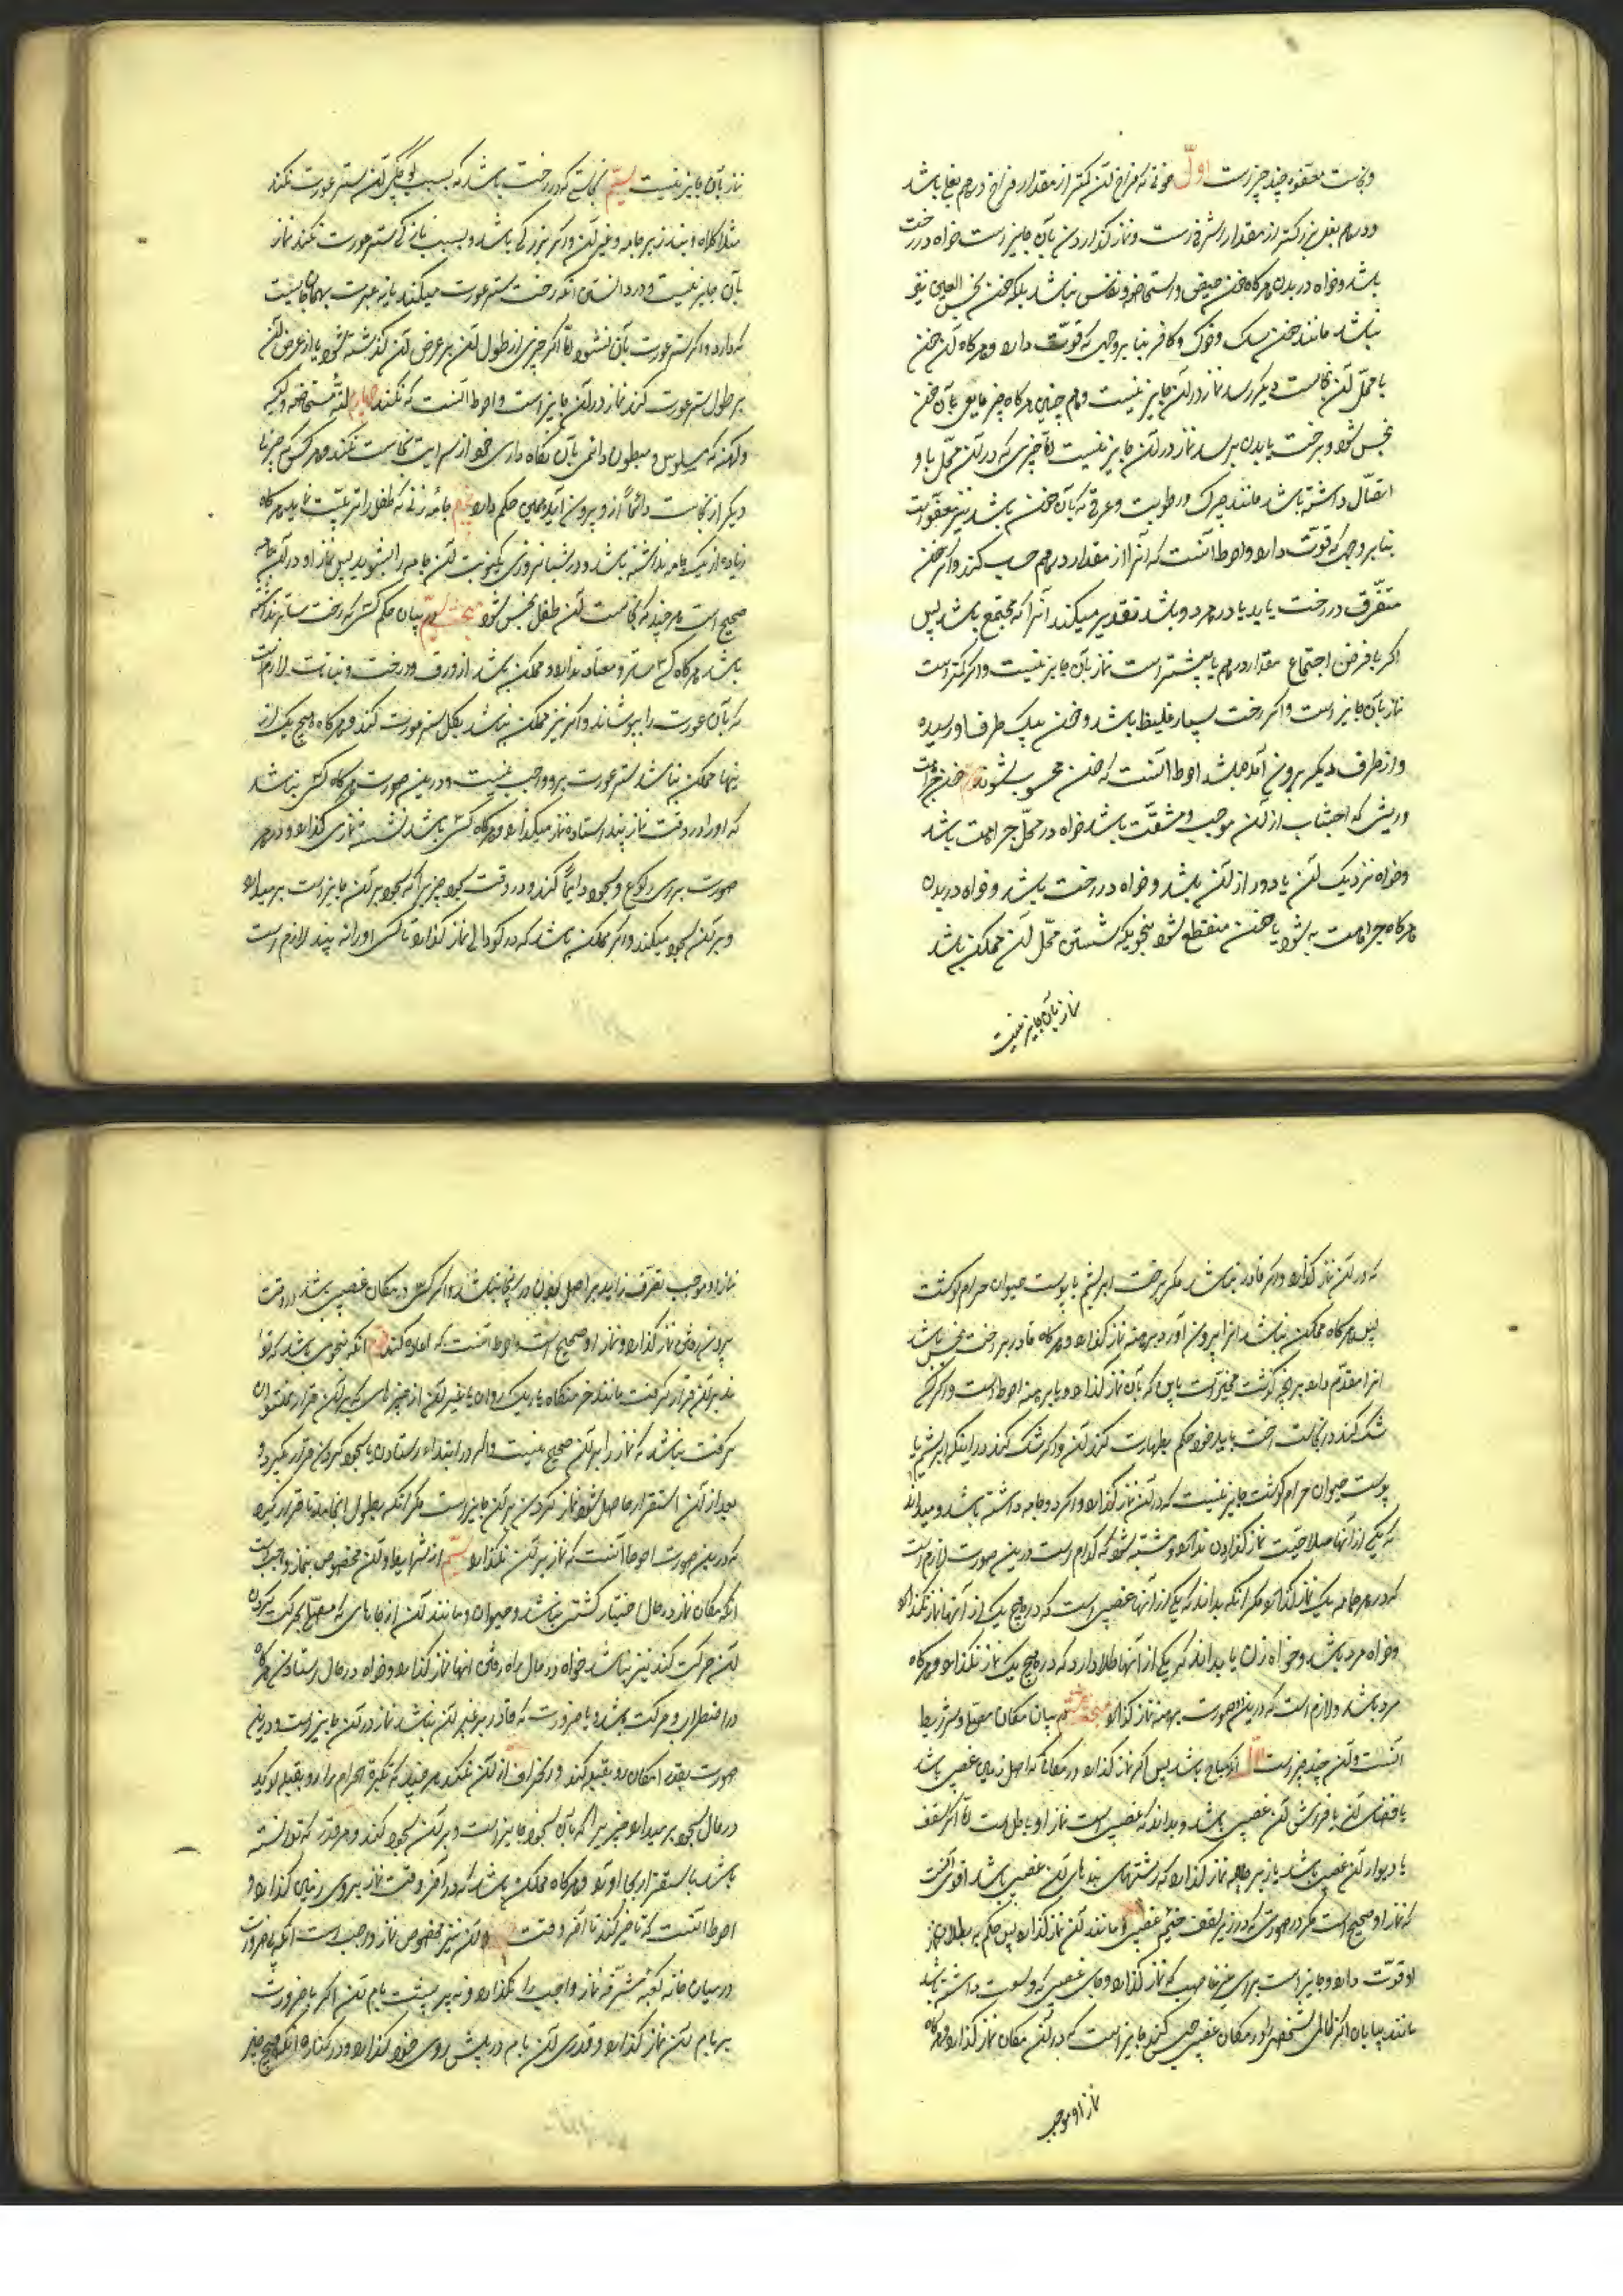 و نجاست معفوه چند چیز است اول خونی که فراخ آن کمتر از مقدار فراخ درهم بغلی باشد
و درهم بغلی بزرگتر از مقدار اشرفی است و نماز گذاردن بآن جایز است خواه در رخت
باشد و خواه در بدن هرگاه خون حیض و استحاضه و نفاس نباشد بلکه خون نجس العین نیز
نباشد مانند خون سک و خوک و کافر بنا بر وجهی که قوت دارد و هرگاه آن خون
با محل آن نجاست دیگر رسد نماز در آن جایز نیست و هم چنین هرگاه چیز مایعی بآن خون
نجس شود و برخت یا بدن برسد نماز در آن جایز نیست اما چیزی که در آن محل با او
اتصال داشته باشد مانند چرک و رطوبت و عرقی که بآن خون باشد نیز معفو است
بنا بر وجهی که قوت دارد و احوط آنست که آنرا از مقدار درهم حساب کند و اگر خون
متفرق در رخت یا بدن یا در هر دو باشد تقدیر میکند آنرا که مجتمع باشد پس
اگر با فرض اجتماع مقدار درهم یا بیشتر است نماز بآن جایز نیست و اگر کمتر است
نماز بآن جایز است و اگر رخت بسیار غلیظ باشد و خون بیک طرف او رسیده
و از طرف دیگر بیرون آمده باشد احوط آنست که خون محسوب شود دوم خون جراحت
و ریش که اجتناب از آن موجب مشقت باشد خواه در محل جراحت باشد
و خواه نزدیک آن یا دور از آن باشد و خواه در رخت باشد و خواه در بدن
هرگاه جراحت به شود یا خون منقطع شود بنحویکه شستن محل آن ممکن باشد
نماز بآن جایز نیست
نماز بآن جایز نیست سیم نجاستی که در رخت باشد که بسبب کوچکی آن ستر عورت نکند
مثل کلاه و بند زیر جامه و غیر آن و اگر بزرگی باشد و بسبب نازکی ستر عورت نکند نماز
بآن جایز نیست و در دانستن آنکه رخت ستر عورت میکند یا نه عبرت بهمان حالتیست
که دارد و اگر ستر عورت بآن نشود اما اگر چیزی از طول آن بر عرض آن گذاشته شود یا از عرض آن
بر طول ستر عورت کند نماز در آن جایز است و احوط آنست که نکند چهارم مستحاضه و کسیکه
و آنکه مسلوس و مبطون دائمی بآن نگاه داری خود از سرایت نجاست نکند و هر کس که چیز
دیگر از نجاست دائما از او بیرون آید همین حکم دارد پنجم جامه زنی که طفل را تربیت نماید هرگاه
زیاده از یک جامه نداشته باشد و در شبانه روزی یکنوبت آن جامه را بشوید پس نماز او در آن جامه
صحیح است هر چند که نجاست آن طفل نجس شود مبحث سیم در بیان حکم کسی که رخت ساتر نداشته
باشد هرگاه کسی ساتر معتاد ندارد و ممکن باشد از ورق درخت و نباتات لازم است
که بآن عورت را بپوشاند و اگر نیز ممکن نباشد بگل ستر عورت کند و هرگاه هیچ یک از
اینها ممکن نباشد ستر عورت بر او واجب نیست و در این صورت هرگاه کسی نباشد
که او را در وقت نماز بیند ایستاده نماز میگذارد و هرگاه کسی باشد نشسته نماز می گذارد و در هر
صورت برای رکوع و سجود ایما کند و در وقت سجود چیزیرا که سجود بر آن جایز است بر میدارد
و بر آن سجود میکند و اگر ممکن باشد که در گودالی نماز گذارد تا کسی او را نه بیند لازم است
که در آن نماز گذارد و اگر قادر نباشد مگر برخت ابریشم یا پوست حیوان حرام گوشت
پس هرگاه ممکن نباشد آنرا بیرون آورد برهنه نماز گذارد و هرگاه قادر بر رخت نجس باشد
آنرا مقدم دارد بر آنچه گذشت مخیر است باین که بآن نماز گذارد و یا برهنه احوط است و اگر کسی
شک کند در نجاست رخت باید خود حکم بطهارت کند آن و اگر شک کند در اینکه ابریشم یا
پوست حیوان حرام گوشت جایز نیست که در آن نماز گذارد و اگر دو جامه داشته باشد و میداند
که یکی از آنها صلاحیت نماز گذاردن ندارد و مشتبه شود که کدام است در این صورت لازم است
که در هر جامه یک نماز گذارد مگر آنکه بداند که یکی از آنها غصبی است که در هیچ یک از آنها نماز نگذارد
و خواه مرد باشد و خواه زن یا بداند که یکی از آنها طلا دارد که در هیچ یک نماز نگذارد هرگاه
مرد باشد و لازم است که در این صورت برهنه نماز گذارد مبحث ششم در بیان مکان مصلی و شرایط
آنست و آن چند چیز است اول آنکه مباح باشد پس اگر نماز گذارد در مکانی که اصل زمین غصبی باشد
یا فضای آن یا فرش آن غصبی باشد و بداند که غصبی است نماز او باطل است اما اگر سقف
یا دیوار آن غصبی باشد یا زیر جامه نماز گذارد که رشتهای بندهای آن غصبی باشد اقوی آنست
که نماز او صحیح است مگر در صورتی که در زیر سقف خیمه غصبی و مانند آن نماز گذارد پس حکم به بطلان نماز
او قوت دارد و جایز است برای غیر غاصب که نماز گذارد در جای غصبی که وسعت داشته باشد
مانند بیابان اگر ظالمی شخصی را در مکان غصبی حبس کند جایز است که در آن مکان نماز گذارد هرگاه
نماز او موجب
نماز او موجب تصرف زاید بر اصل بودن در اینجا نباشد و اگر کسی در مکان غصبی باشد در وقت
بیرون رفتن نماز گذارد و نماز او صحیح است و احوط آنست که اعاده کند دوم آنکه بنحوی باشد که توا
ند بر آن قرار گرفت مانند خرمنگاه یا ریک روان یا غیر آن از چیزهای که بر آن قرار نمیتوان
گرفت نباشد که نماز را بر آن صحیح نیست و اگر در ابتداء ایستادن یا سجود کردن قرار نگیرد و
بعد از آن استقرار حاصل شود نماز کردن بر آن جایز است مگر آنکه بطول انجامد تا قرار گیرد
که در این صورت احوط آنست که نماز بر آن نگذارد سیم از شرایط و آن مخصوص بنماز واجب است
آنکه مکان نماز در حال اختیار کشتی نباشد و حیوان و مانند آن از جاهای که مصلی بحرکت کردن
آن حرکت کند نیز نباشد خواه در حال راه رفتن آنها نماز گذارد و خواه در حال ایستادن هرگاه
در اضطراب و حرکت باشد و با ضرورت که قادر بر غیر آن نباشد نماز در آن جایز است و در این
صورت بقدر امکان رو بقبله کند و انحراف از آن نکند هر چند که تکبیرة احرام را رو بقبله گوید
در حال سجود بر میدارد چیزیرا که بآن سجود جایز است و بر آن سجود کند و هر قدر که توانسته
باشد باستقرار بجا آورد و هرگاه ممکن باشد که در آخر وقت نماز بروی زمین گذارد
احوط آنست که تاخیر کند تا آخر وقت چهارم و آن نیز مخصوص نماز واجب است آنکه بی ضرورت
در میان خانه کعبه مشرفه نماز واجب را نگذارد و نه بر پشت بام آن اگر با ضرورت
بر بام آن نماز گذارد و قدری آن بام در پیش روی خود گذارد و در کناره آنکه هیچ چیز